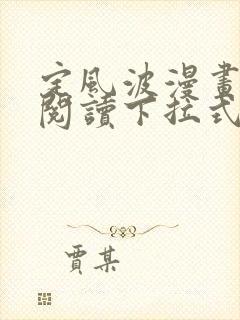 定風波漫畫
閱讀下拉式
賈某